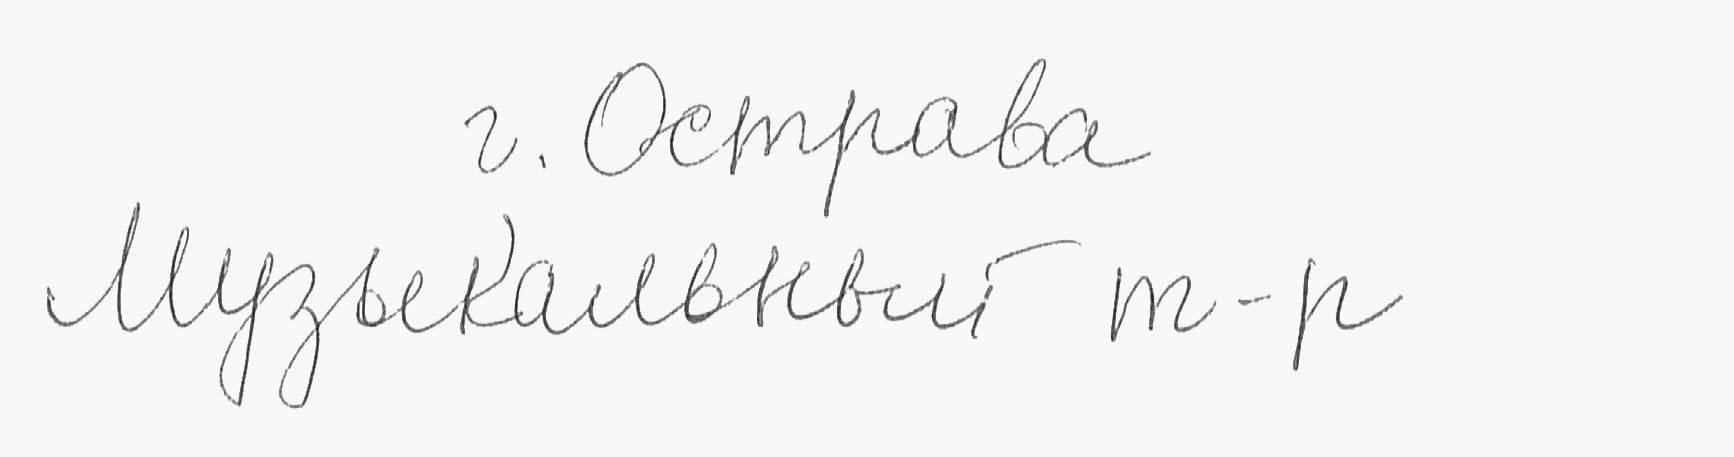 г. Острава
Музыкальный т-р